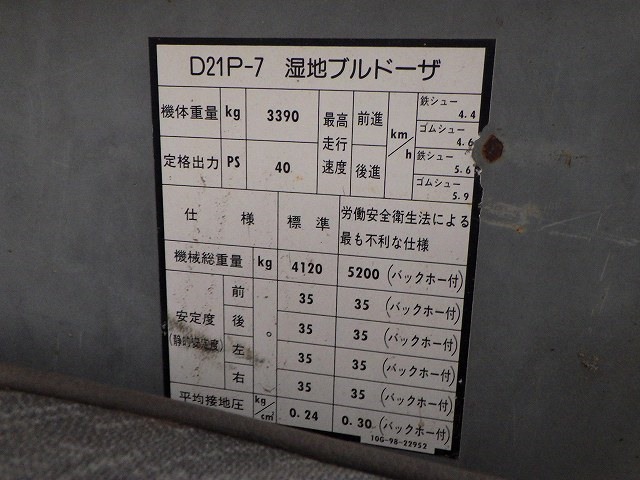 D21P-7 湿地ブルドーザ
機体重量 kg 3390 最高走行速度 前進 km/h 鉄シュー 4.4
ゴムシュー 4.6
定格出力 PS 40 後進 鉄シュー 5.6
ゴムシュー 5.9
仕様 標準 労働安全衛生法による
最も不利な仕様
機械総重量 kg 4120 5200 (バックホー付)
安定度 (静的安定度) 前 ° 35 35 (バックホー付)
後 35 35 (バックホー付)
左 35 35 (バックホー付)
右 35 35 (バックホー付)
平均接地圧 kg/cm² 0.24 0.30 (バックホー付)
10G-98-22952